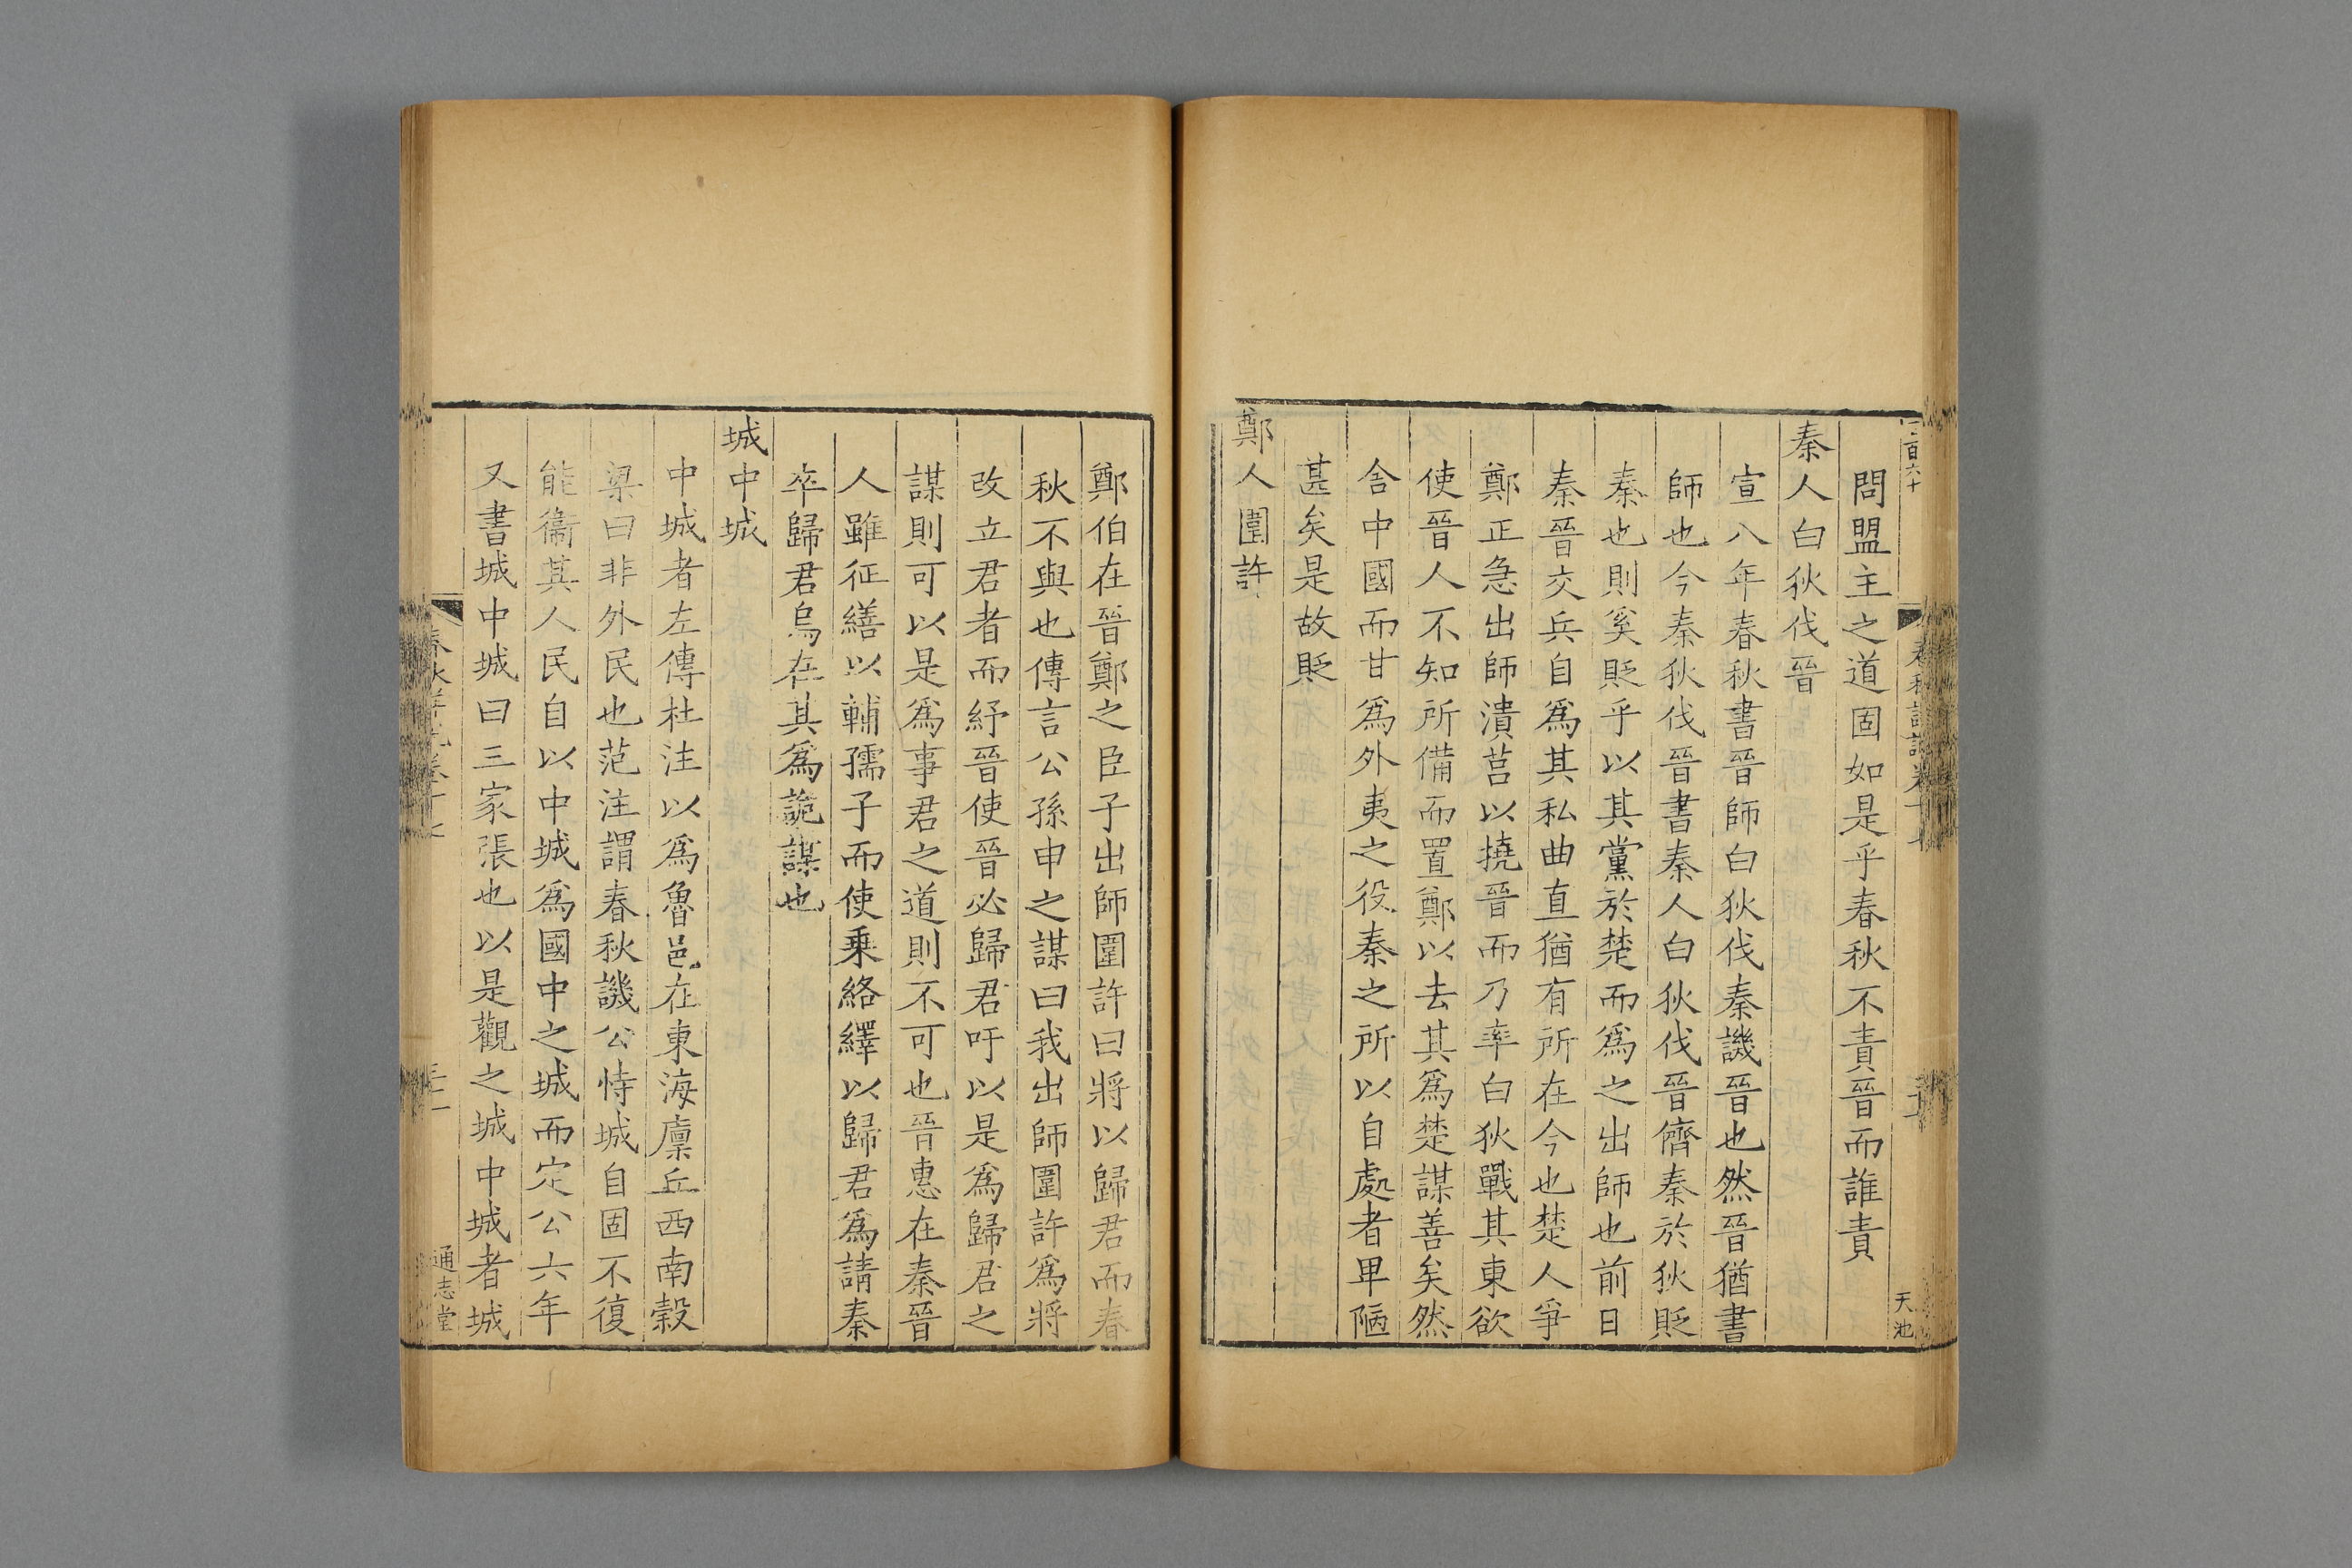 百六十
天池
問盟主之道固如是乎春秋不責晉而誰責
秦人白狄伐晉
宣八年春秋書晉師白狄伐秦譏晉也然晉猶書
師也今秦狄伐晉書秦人白狄伐晉儕秦於狄貶
秦也則奚貶乎以其黨於楚而爲之出師也前日
秦晉交兵自爲其私曲直猶有所在今也楚人爭
鄭正急出師潰莒以撓晉而乃率白狄戰其東欲
使晉人不知所備而置鄭以去其爲楚謀善矣然
舍中國而甘爲外夷之役秦之所以自處者卑陋
甚矣是故貶
鄭人圍許
鄭伯在晉鄭之臣子出師圍許曰將以歸君而春
秋不與也傳言公孫申之謀曰我出師圍許爲將
改立君者而紓晉使晉必歸君吁以是爲歸君之
謀則可以是爲事君之道則不可也晉惠在秦晉
人雖征繕以輔孺子而使乗絡繹以歸君爲請秦
卒歸君烏在其爲詭謀也
城中城
中城者左傳杜注以爲魯邑在東海廩丘西南穀
梁曰非外民也范注謂春秋譏公恃城自固不復
能衞其人民自以中城爲國中之城而定公六年
又書城中城曰三家張也以是觀之城中城者城
通志堂